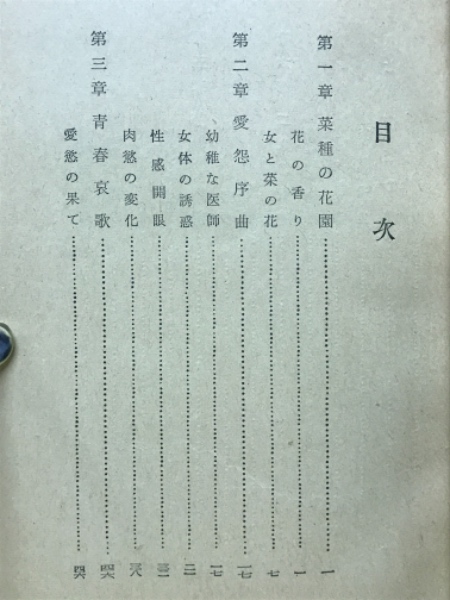 目次
第一章 菜種の花園 一
花の香り 一
女と菜の花 七
第二章 愛怨序曲 一七
幼稚な医師 一七
女体の誘惑
性感開眼
肉慾の変化
第三章 青春哀歌 四六
愛慾の果て 四六